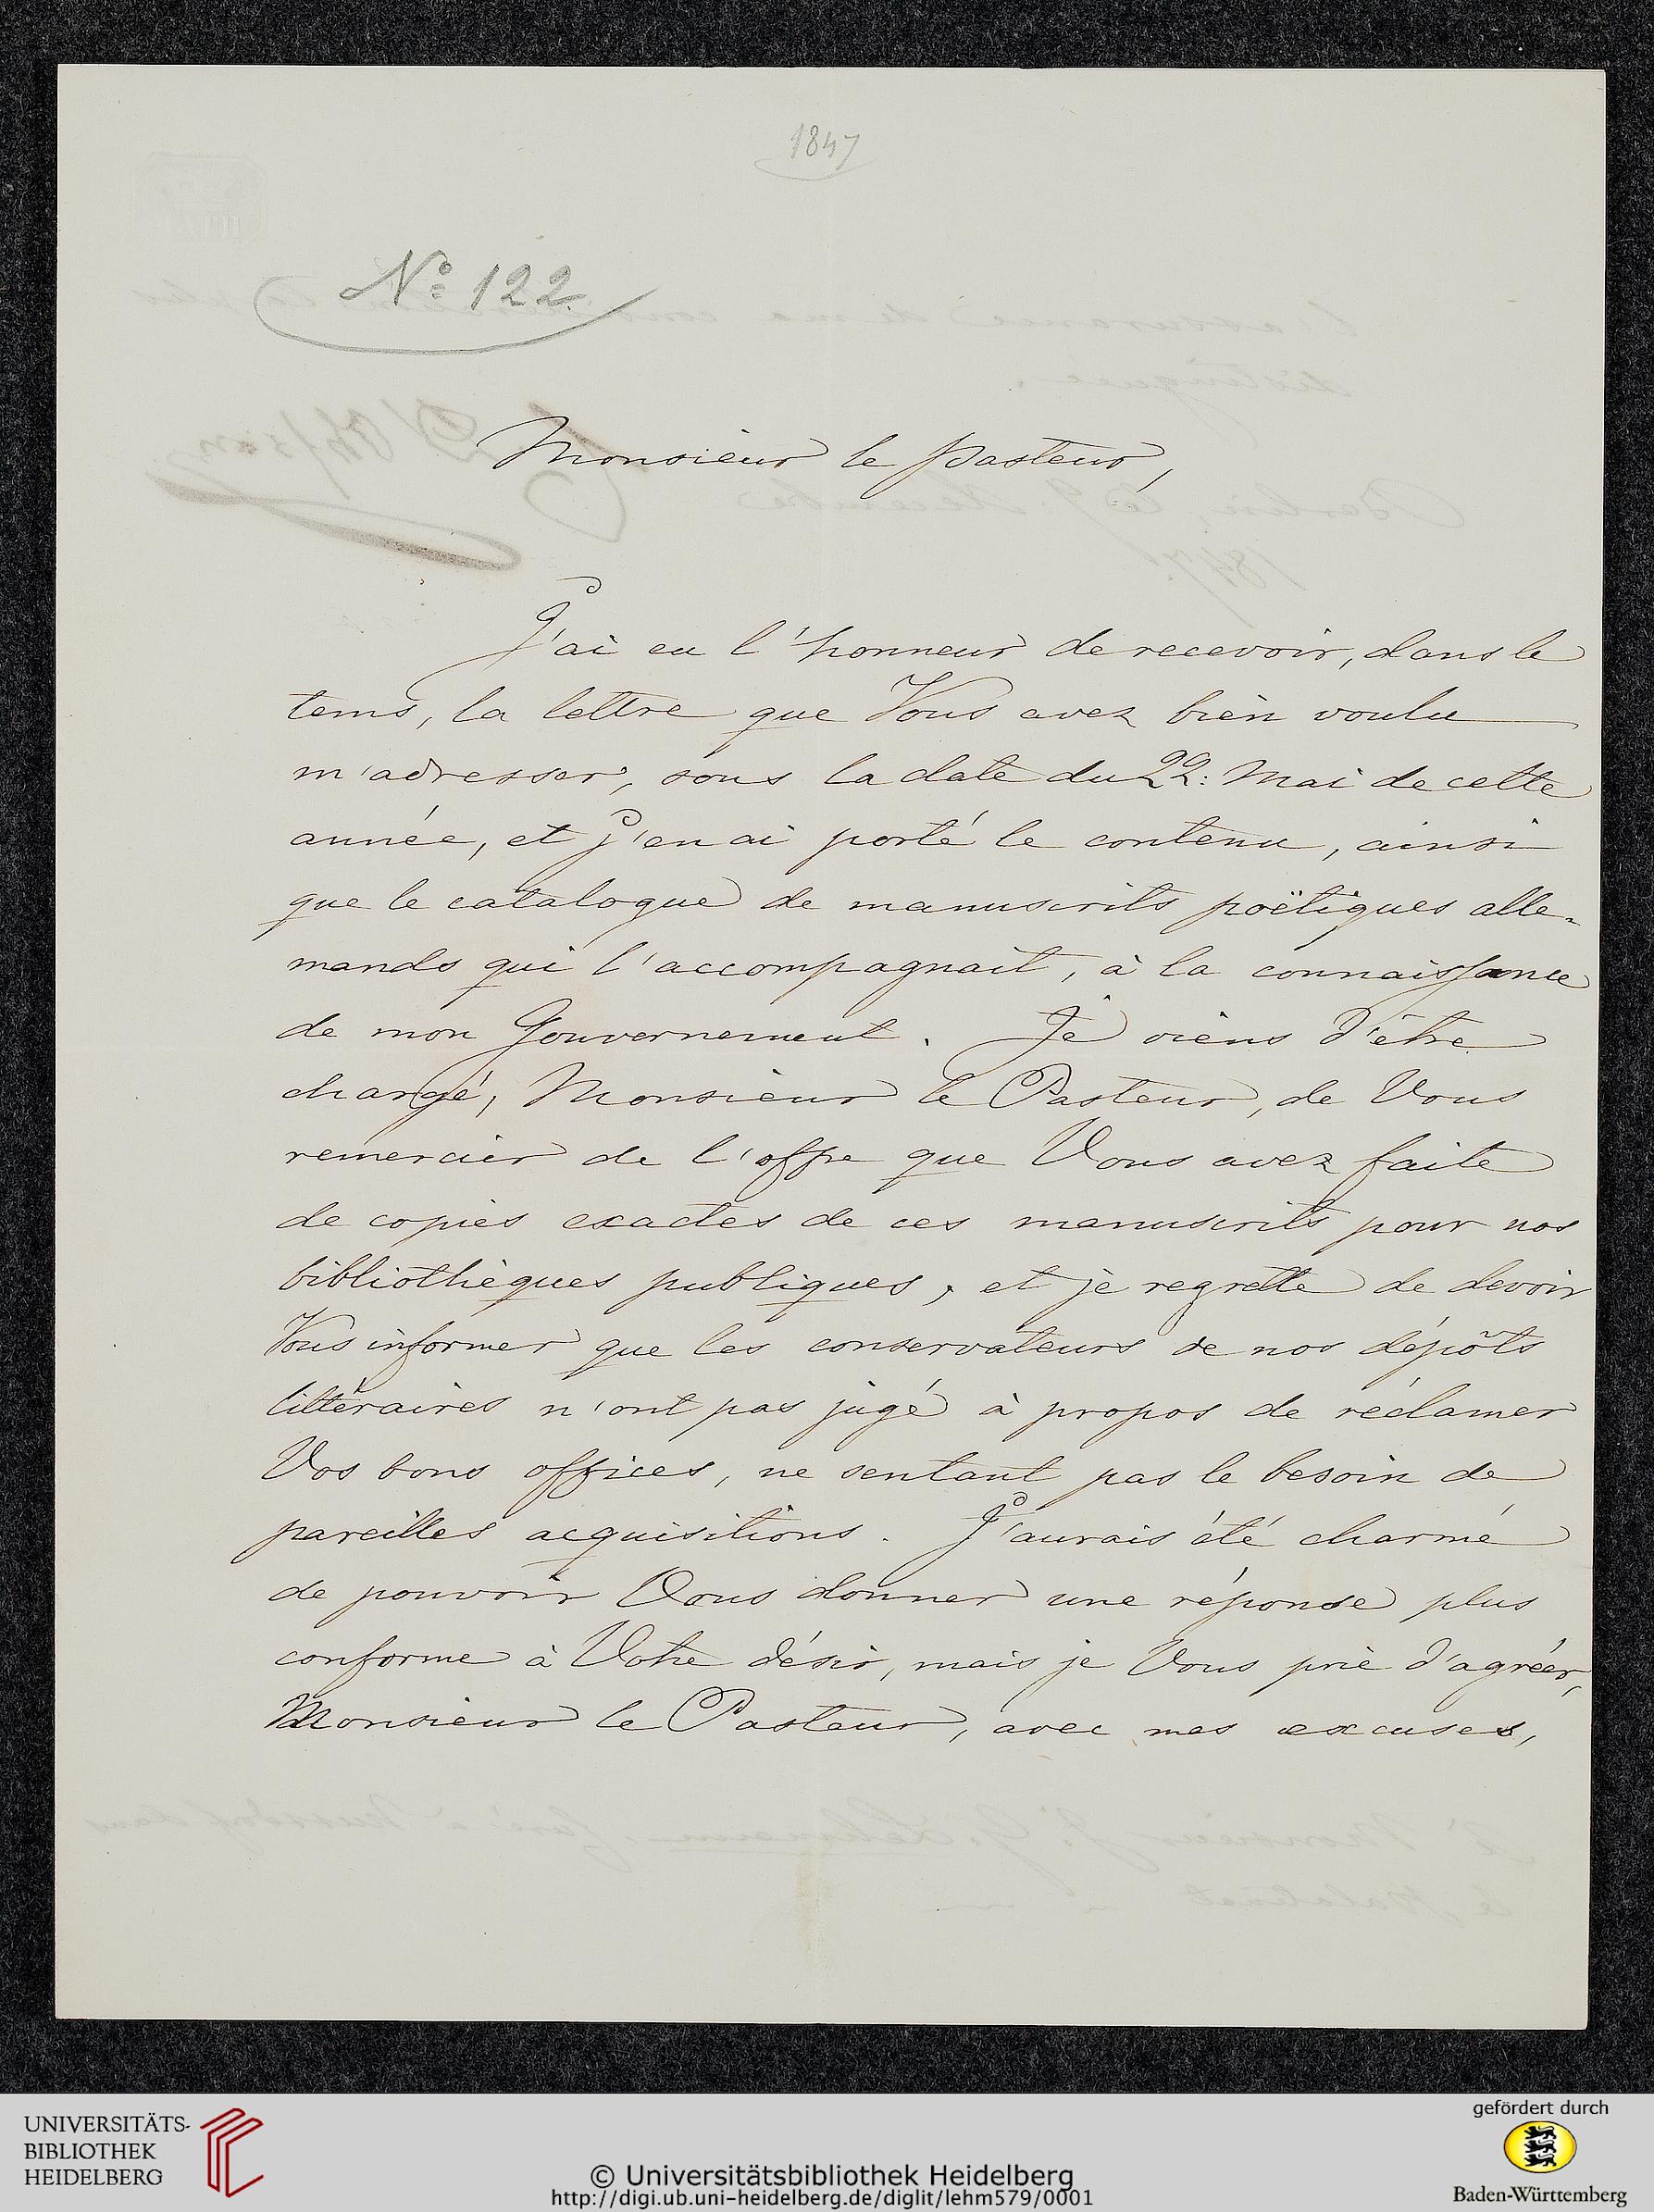 1847
No 122.
Monsieur le Pasteur,
J'ai eu l'honneur de recevoir, dans le
tems, la lettre que Vous avez bien voulu
m'adresser, sous la date du 22: Mai de cette
année, et j'en ai porté le contenu, ainsi
que le catalogue de manuscrits poëtiques alle-
mands qui l'accompagnait, à la connaissance
de mon Gouvernement. Je viens d'être
chargé, Monsieur le Pasteur, de Vous
remercier de l'offre que Vous avez faite
de copies exactes de ces manuscrits pour nos
bibliothèques publiques, et je regrette de devoir
Vous informer que les conservateurs de nos dépôts
littéraires n'ont pas jugé à propos de réclamer
Vos bons offices, ne sentant pas le besoin de
pareilles acquisitions. J'aurais été charmé
de pouvoir Vous donner une réponse plus
conforme à Votre désir, mais je Vous prie d'agréer,
Monsieur le Pasteur, avec mes excuses,
UNIVERSITÄTS-
BIBLIOTHEK
HEIDELBERG
© Universitätsbibliothek Heidelberg
http://digi.ub.uni-heidelberg.de/diglit/lehm579/0001
gefördert durch
Baden-Württemberg